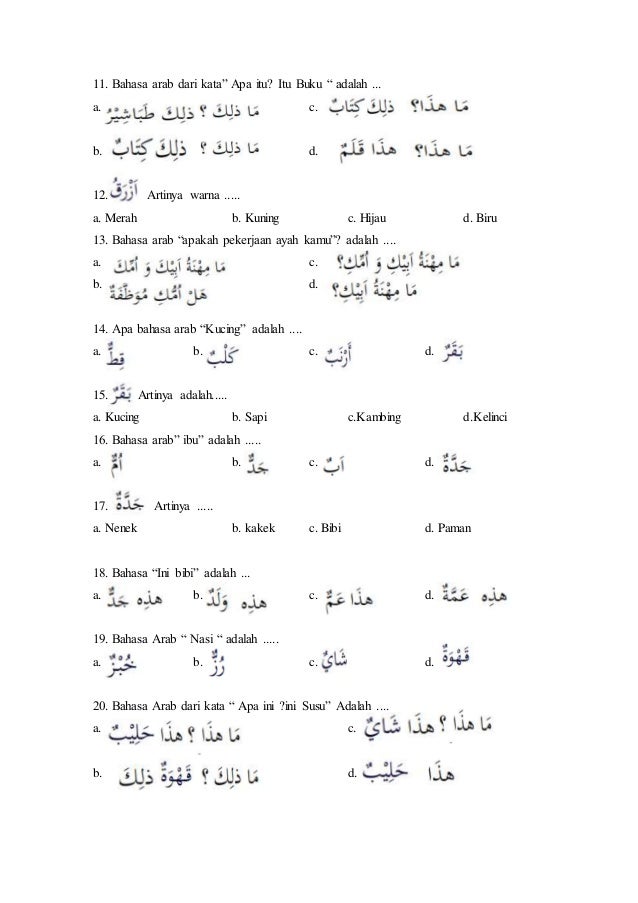 11. Bahasa arab dari kata” Apa itu? Itu Buku “ adalah ...
a. مَا ذلِكَ ؟ ذلِكَ طَبَاشِيْرُ c. مَا هذَا؟ ذلِكَ كِتَابٌ
b. مَا ذلِكَ ؟ ذلِكَ كِتَابٌ d. مَا هذَا؟ هذَا قَلَمٌ
12. اَزْرَقُ Artinya warna .....
a. Merah b. Kuning c. Hijau d. Biru
13. Bahasa arab “apakah pekerjaan ayah kamu”? adalah ....
a. مَا مِهْنَةُ اَبِيْكَ وَ اُمِّكَ c. مَا مِهْنَةُ اَبِيْكِ وَ اُمِّكِ؟
b. هَلْ اُمُّكِ مُوَظَّفَةٌ d. مَا مِهْنَةُ اَبِيْكِ؟
14. Apa bahasa arab “Kucing” adalah ....
a. قِطٌّ b. كَلْبٌ c. أَرْنَبٌ d. بَقَرٌ
15. بَقَرٌ Artinya adalah.....
a. Kucing b. Sapi c.Kambing d.Kelinci
16. Bahasa arab” ibu” adalah .....
a. اُمٌّ b. جَدٌّ c. اَبٌ d. جَدَّةٌ
17. جَدَّةٌ Artinya .....
a. Nenek b. kakek c. Bibi d. Paman
18. Bahasa “Ini bibi” adalah ...
a. هذِهِ جَدٌّ b. هذِهِ وَلَدٌ c. هذَا عَمٌّ d. هذِهِ عَمَّةٌ
19. Bahasa Arab “ Nasi “ adalah .....
a. خُبْزٌ b. رُزٌّ c. شَايٌ d. قَهْوَةٌ
20. Bahasa Arab dari kata “ Apa ini ?ini Susu” Adalah ....
a. مَا هذَا ؟ هذَا حَلِيْبٌ c. مَا هذَا ؟ هذَا شَايٌ
b. مَا ذلِكَ ؟ قَهْوَةٌ ذلِكَ d. هذَا حَلِيْبٌ